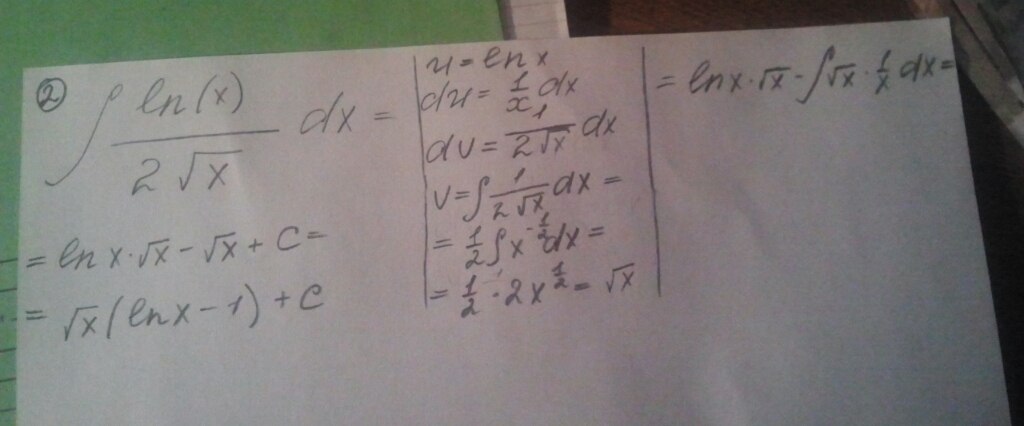 ② ∫ ln(x) / 2√x dx =
u = ln x
du = 1/x dx
dv = 1/2√x dx
v = ∫ 1/2√x dx =
= 1/2 ∫ x^-1/2 dx =
= 1/2 · 2x^1/2 = √x
= ln x · √x - ∫ √x · 1/x dx =
= ln x · √x - √x + C =
= √x (ln x - 1) + C